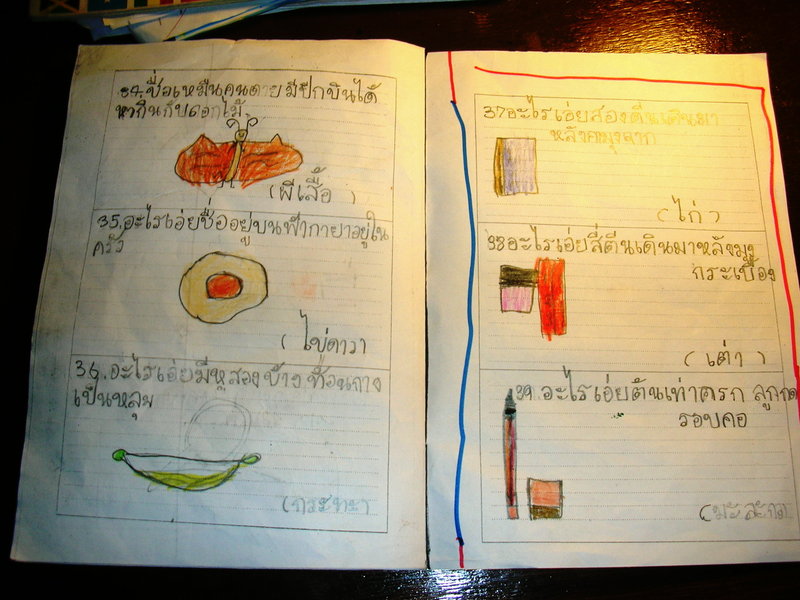 34.ชื่อเหมือนคนตาย มีปีกบินได้
หากินกับดอกไม้
(ผีเสื้อ )
35.อะไรเอ่ยชื่ออยู่บนฟ้ากายาอยู่ใน
ครัว
( ไข่ดาว
36.อะไรเอ่ยมีหูสองข้าง ท้อนกาง
เป็นหลุม
(กระทะ
37อะไรเอ่ยสองตีนเดินมา
หลังคามุงจาก
(ไก่ )
38อะไรเอ่ยสี่ตีนเดินมาหลังมุง
กระเบื้อง
( เต่า )
39.อะไรเอ่ยต้นเท่าครก ลูกดก
รอบคอ
(มะละกอ